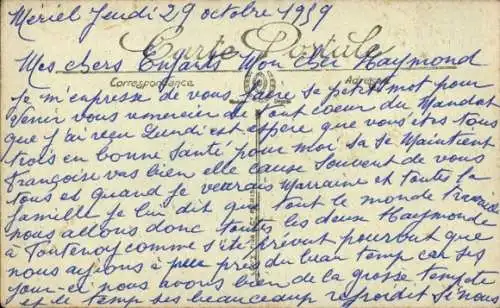 Mériel Jeudi 29 octobre 1959
Carte Postale
Mes chers Enfants Mon cher Raymond
Correspondance Adresse
Je m'empresse de vous faire se petit mot pour
Venir vous remercier de tout coeur du Mandat
que j'ai reçu Lundi est espère que vous êtes tous
trois en bonne santé pour moi sa se Maintient
françoise vas bien elle cause souvent de vous
tous et quand je veurais Marraine et toutes la
famille je lui dit que tout le monde travaille
nous allons donc toutes les deux Raymonde
a Fontenoy comme s'ete prévut pourvut que
nous ayions à peu près du beau temp car ses
jour-ci nous avons bien de la grosse tempête
et le temp ses beaucoup refroidit Sinon